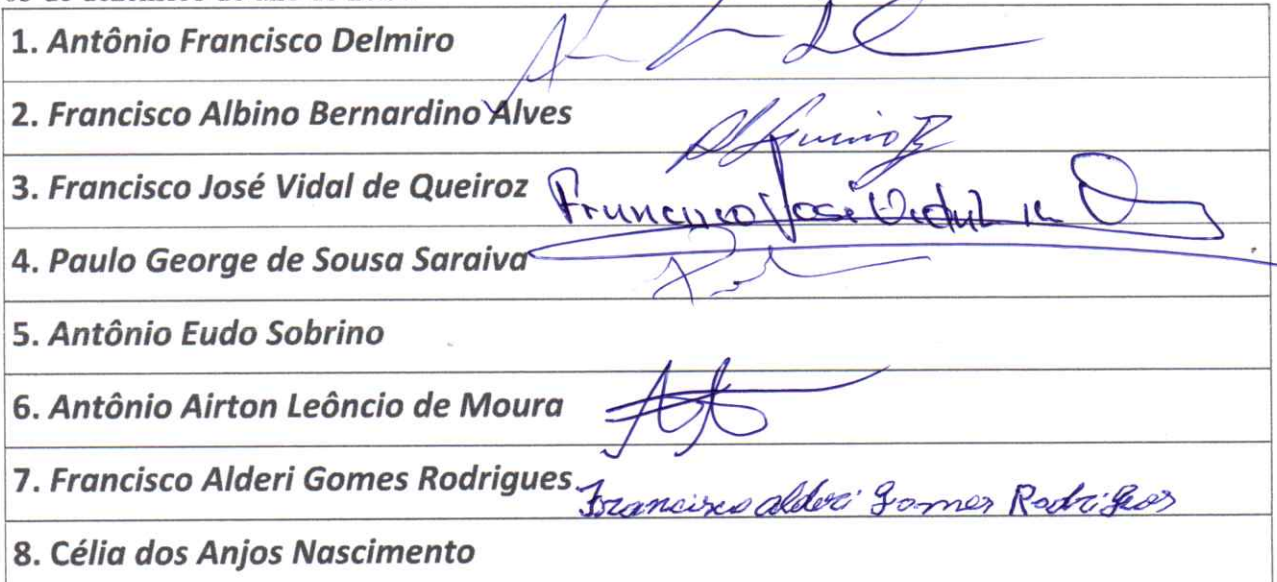 1. Antônio Francisco Delmiro
2. Francisco Albino Bernardino Alves
3. Francisco José Vidal de Queiroz Francisco José Vidal
4. Paulo George de Sousa Saraiva
5. Antônio Eudo Sobrino
6. Antônio Airton Leôncio de Moura
7. Francisco Alderi Gomes Rodrigues Francisco alderi Gomes Rodrigues
8. Célia dos Anjos Nascimento